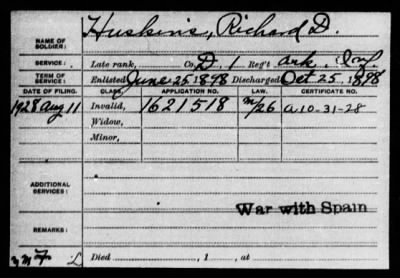 NAME OF SOLDIER: Huskins, Richard D.
SERVICE: Late rank, Co. D. 1 Reg't Ark. Inf.
TERM OF SERVICE: Enlisted June 25 1898 Discharged Oct 25, 1898
DATE OF FILING. CLASS. APPLICATION NO. LAW. CERTIFICATE NO.
1928 Aug 11 Invalid, 1621518 M/26 a 10-31-28
Widow,
Minor,
ADDITIONAL SERVICES:
War with Spain
REMARKS:
Died , 1 , at